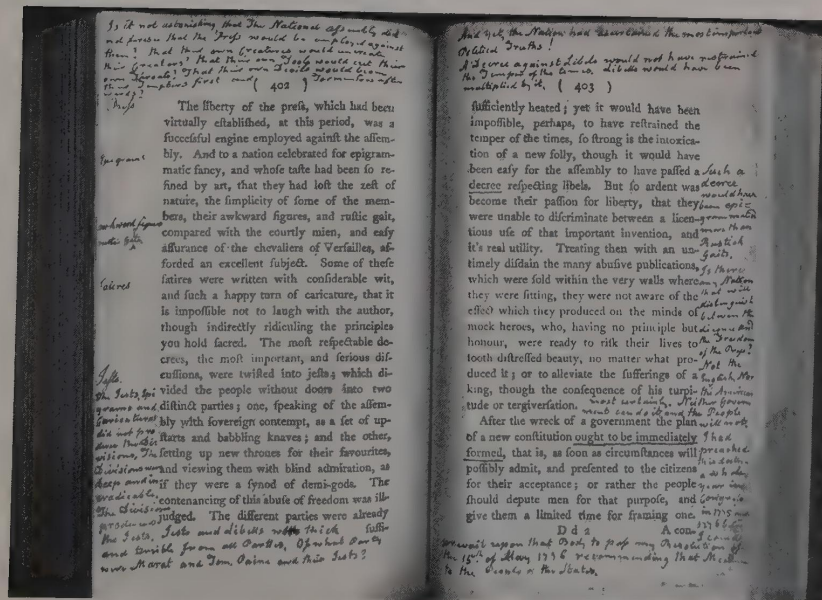 Is it not astonishing that The National Assembly did
not foresee that the Press would be employed against
them? that their own Creatures would uncreate
their Creators? that their own Tools would cut their
own Threats? That their own Devils would become
their Tempters first and Tormentors after
wards?
( 402 )
Press
The liberty of the preſs, which had been
virtually eſtabliſhed, at this period, was a
ſucceſsful engine employed againſt the aſſem-
bly. And to a nation celebrated for epigram-
Epigrams
matic fancy, and whoſe taſte had been ſo re-
fined by art, that they had loſt the zeſt of
nature, the ſimplicity of ſome of the mem-
awkward figures
bers, their awkward figures, and ruſtic gait,
compared with the courtly mien, and eaſy
aſſurance of the chevaliers of Verſailles, af-
forded an excellent ſubject. Some of theſe
Satires
ſatires were written with conſiderable wit,
and ſuch a happy turn of caricature, that it
is impoſſible not to laugh with the author,
though indirectly ridiculing the principles
you hold ſacred. The moſt reſpectable de-
crees, the moſt important, and ſerious diſ-
cuſſions, were twiſted into jeſts; which di-
vided the people without doors into two
diſtinct parties; one, ſpeaking of the aſſem-
bly with ſovereign contempt, as a ſet of up-
ſtarts and babbling knaves; and the other,
ſetting up new thrones for their favourites,
and viewing them with blind admiration, as
if they were a ſynod of demi-gods. The
contenancing of this abuſe of freedom was ill-
judged. The different parties were already
ſuffi-
Jeſts.
the Jests, Epi
grams and
Caricatures
did not pro
duce the Di
visions, The
Divisions were
deep and in
eradicable.
The Divisions
produced
the Jests. Jests and libells thick
and terrible from all Parties. Of what Party
were Marat and Tom Paine and their Jests?
And yet, the Nation had ascertained the most important
Political Truths!
A Decree against Libels would not have restrained
the Temper of the times. Libells would have been
multiplied by it.
( 403 )
ſufficiently heated; yet it would have been
impoſſible, perhaps, to have reſtrained the
temper of the times, ſo ſtrong is the intoxica-
tion of a new folly, though it would have
been eaſy for the aſſembly to have paſſed a
decree reſpecting libels. But ſo ardent was
become their paſſion for liberty, that they
were unable to diſcriminate between a licen-
tious uſe of that important invention, and
it's real utility. Treating then with an un-
timely diſdain the many abuſive publications,
which were ſold within the very walls where
they were ſitting, they were not aware of the
effect which they produced on the minds of
mock heroes, who, having no principle but
honour, were ready to riſk their lives to
ſooth diſtreſſed beauty, no matter what pro-
duced it; or to alleviate the ſufferings of a
king, though the conſequence of his turpi-
tude or tergiverſation.
Such a
decree
would have
been epi-
grammatised
more than
Rustick
Gaits.
Is there
any Nation
that will
distinguish
between the
licence and
the Freedom
of the Press?
Not the
English, Nor
the American
most certainly. Neither Govern
ment can do it and the People
will not.
After the wreck of a government the plan
of a new conſtitution ought to be immediately
formed, that is, as ſoon as circumſtances will
poſſibly admit, and preſented to the citizens
for their acceptance; or rather the people
ſhould depute men for that purpoſe, and
give them a limited time for framing one.
D d 2
A con-
I had
preached
this doctrine
a whole
year in
Congress
in 1775 and
1776 before
I could
prevail upon that Body to pass my Resolution of
the 15th of May 1776 recommending that Measure
to the People of the States.